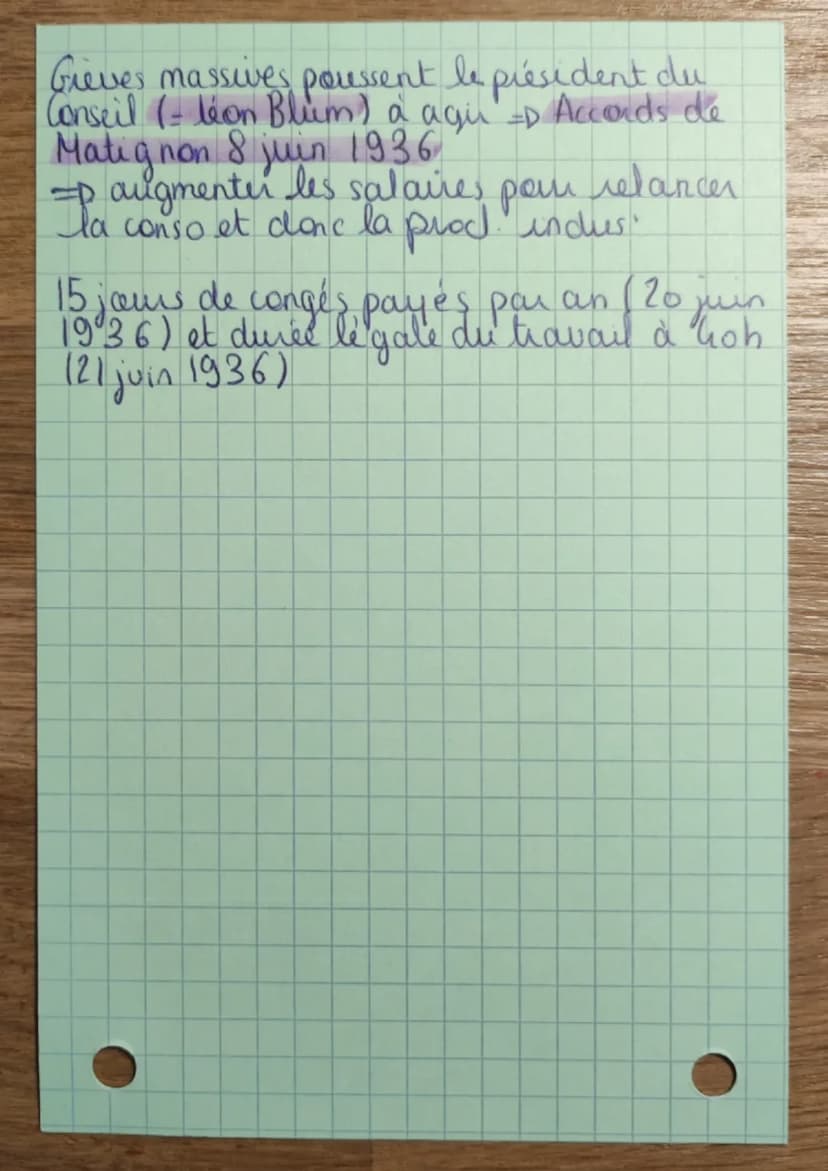 Grèves massives poussent le président du
Conseil (= léon Blum) à agir => Accords de
Matignon 8 juin 1936
=> augmenter les salaires pour relancer
la conso et donc la prod. indus.
15 jours de congés payés par an (20 juin
1936) et durée légale du travail à 40h
(21 juin 1936)